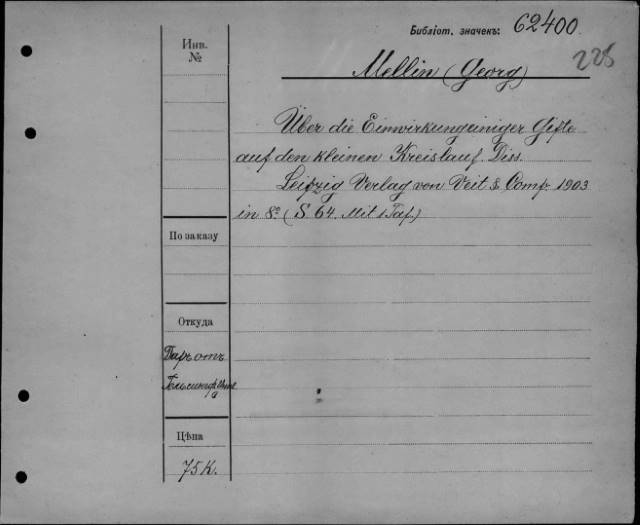 Библіот. значекъ: 62400
228
Инв.
№
Mellin (Georg)
Über die Einwirkungeiniger Gifte
auf den kleinen Kreislauf. Diss.
Leipzig Verlag von Veit & Comp. 1903
in 8º (S 64. Mit 1 Taf.)
По заказу
Откуда
Даръ отъ
Цѣна
75 К.